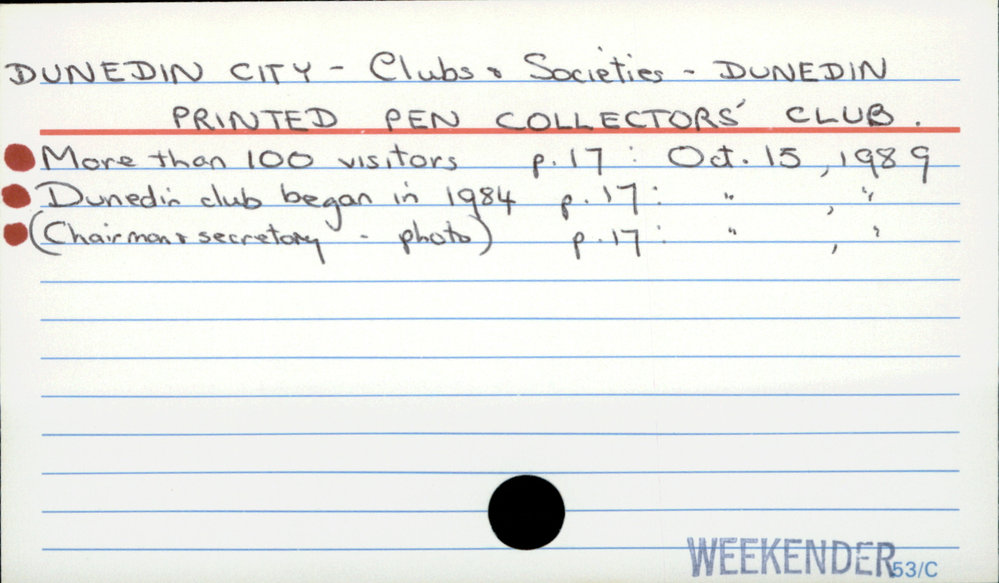 DUNEDIN CITY - Clubs & Societies - DUNEDIN
PRINTED PEN COLLECTORS' CLUB.
More than 100 visitors p.17 : Oct. 15, 1989
Dunedin club began in 1984 p.17 : " , "
(Chairman & secretary - photo) p.17 : " , "
WEEKENDER 53/C